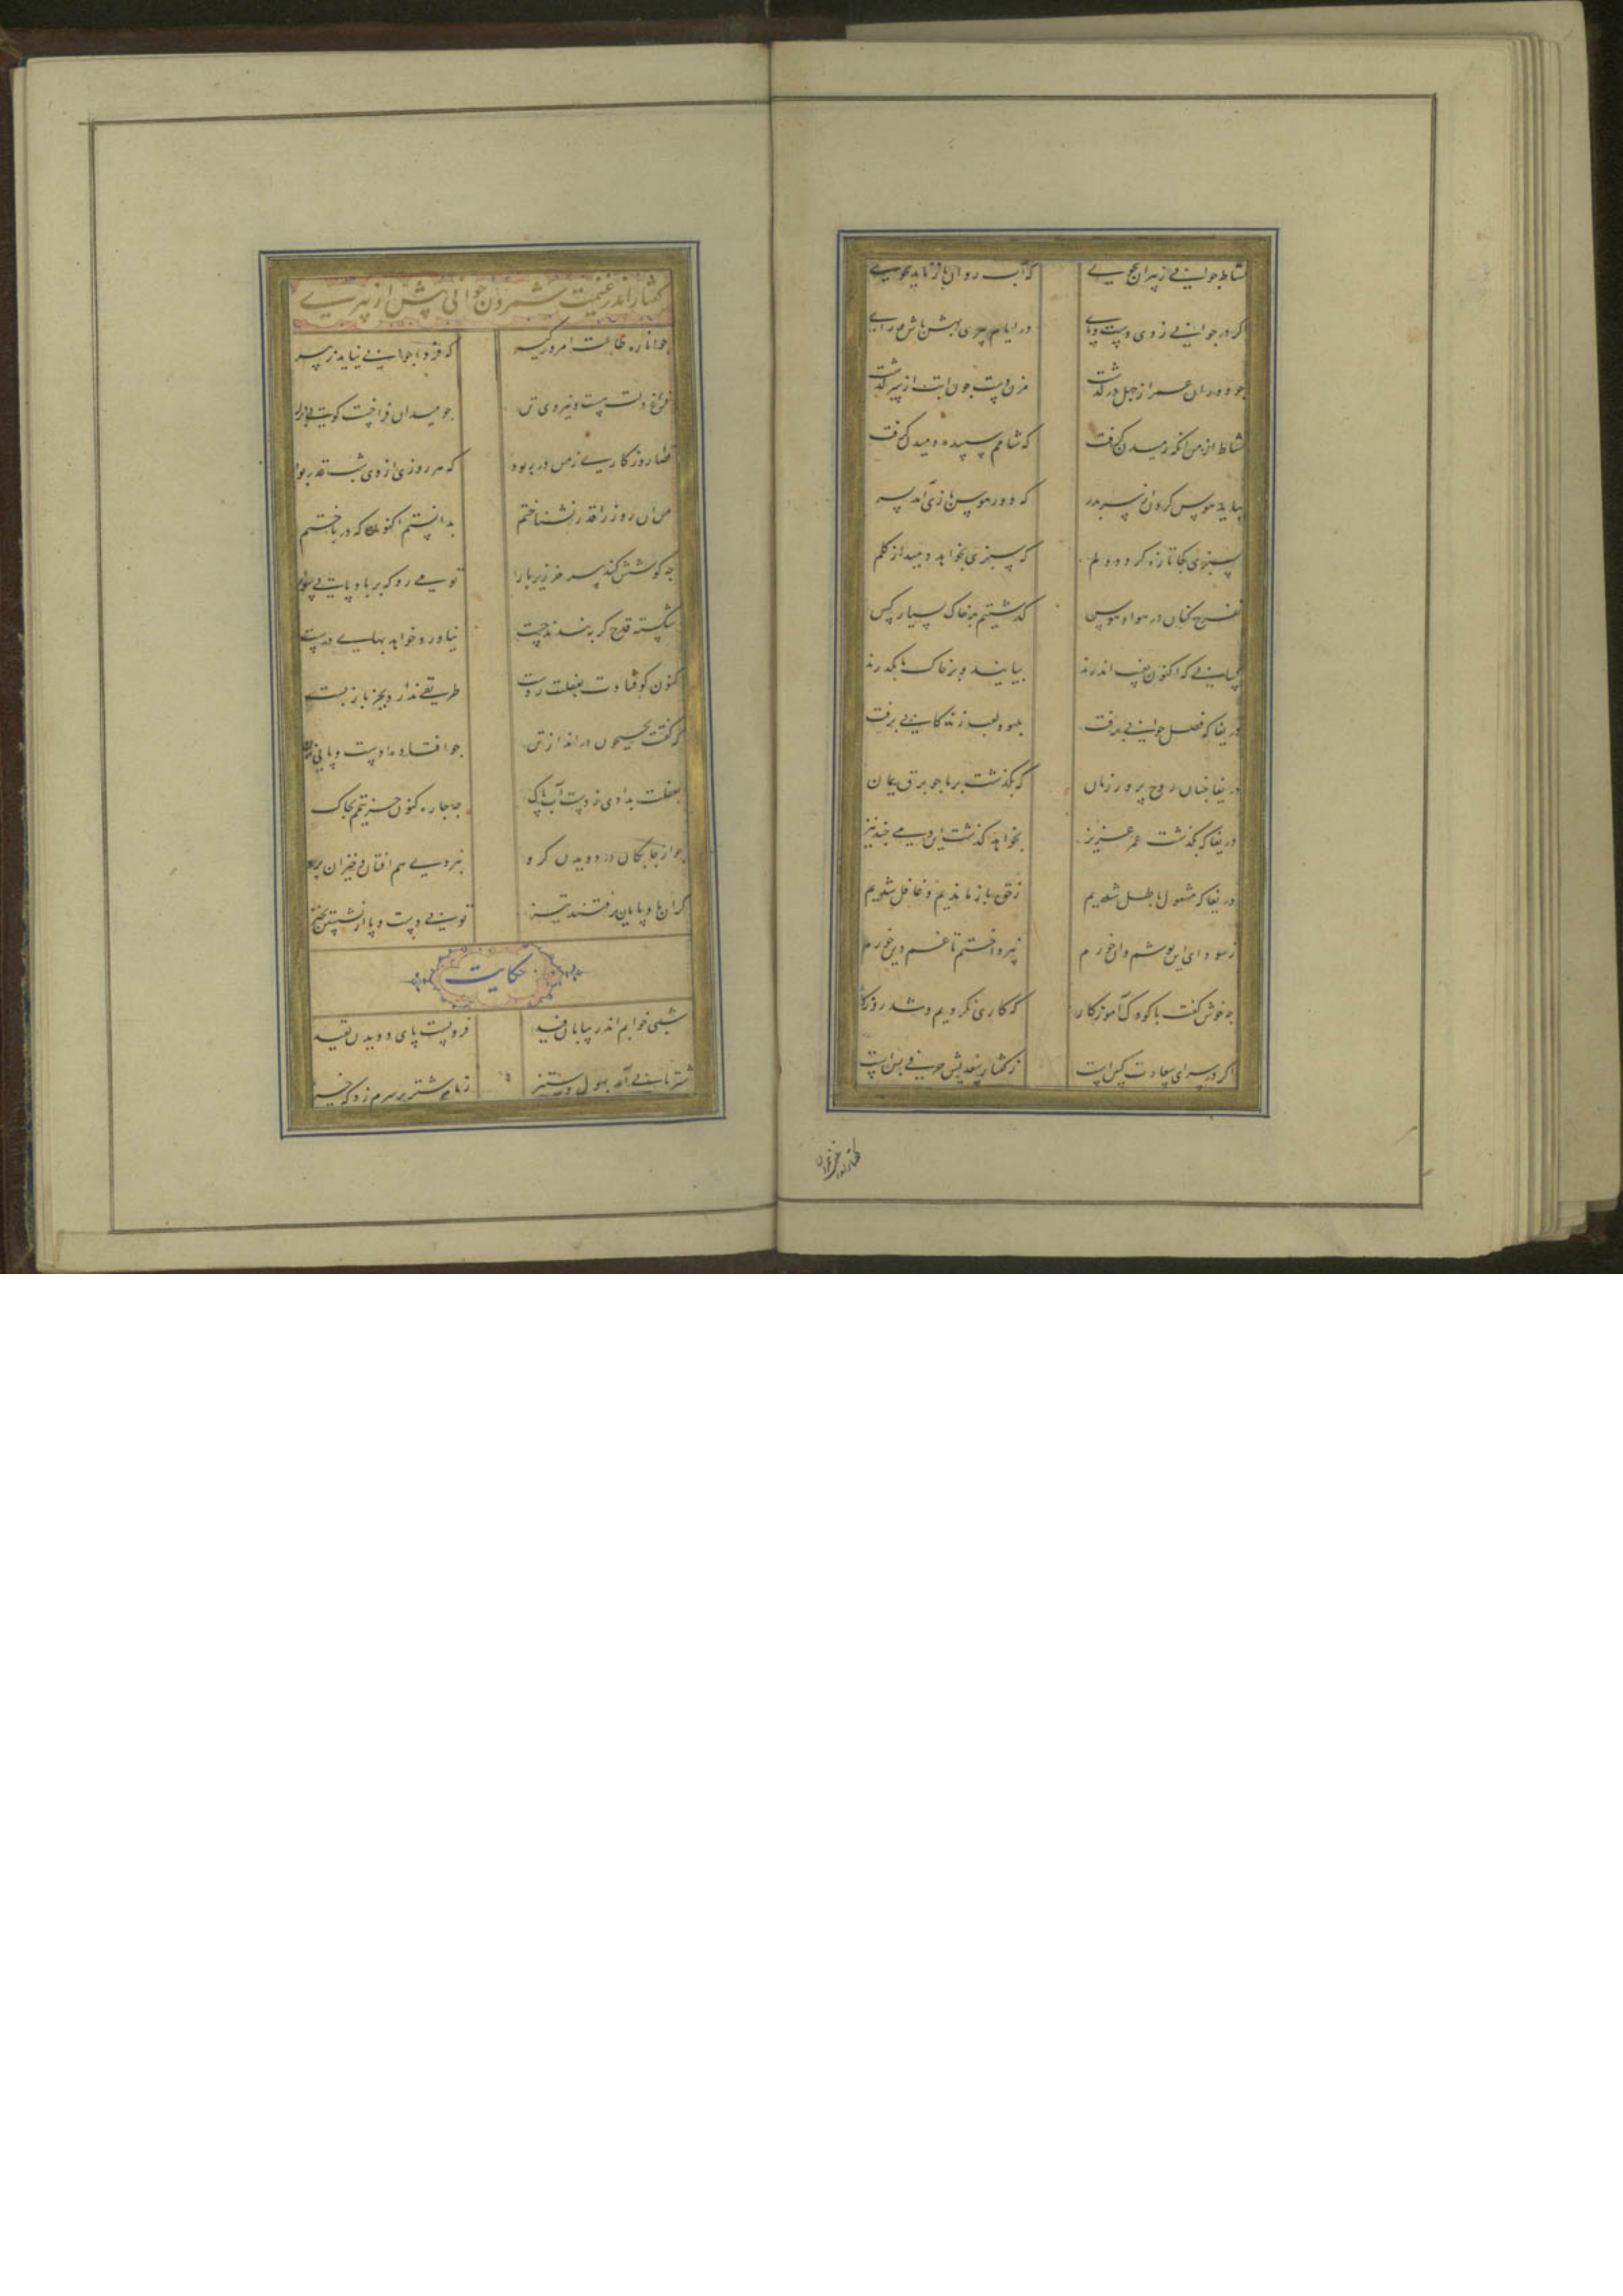 نشاط جوانی ز پیران مجوی
که آب روان باز ناید بجوی
اکر در جوانی زدی دست و پای
در ایام پیری بهش باش و رای
جو دوران عمر از جهل درکذشت
مزن دست و پا کابت از سر کذشت
نشاط از من آنکه رمیدن کرفت
که شامم سپیده دمیدن کرفت
بباید هوس کردن از سر بدر
که دور هوس بازی آمد بسر
بسبزی کجا تازه کردد دلم
که سبزی بخواهد دمید از کلم
تفرج کنان در هوا و هوس
کذشتیم بر خاک بسیار کس
کسانی که اکنون بغیب اندرند
بیایند و بر خاک ما بکذرند
دریغا که فصل جوانی برفت
بلهو و لعب زندکانی برفت
دریغا جنان روح پرور زمان
که بکذشت بر ما جو برق یمان
دریغا که بکذشت عمر عزیز
بخواهد کذشت این دمی جند نیز
دریغا که مشغول باطل شدیم
ز حق باز ماندیم و غافل شدیم
ز سودای این پوشم و آن خورم
نپرداختم تا غم دین خورم
جه خوش کفت با کودک آموزکار
که کاری نکردیم و شد روزکار
اکر در سرای سعادت کس است
ز کفتار سعدیش حرفی بس است
کفتار اندر غنیمت شمردن جوانی پیش از پیری
جوانا ره طاعت امروز کیر
که فردا جوانی نیاید ز پیر
فراغ دلت هست و نیروی تن
جو میدان فراخست کویی بزن
قضا روزکاری ز من در ربود
که هر روزی از وی شب قدر بود
من آن روز را قدر نشناختم
بدانستم اکنون که درباختم
جه کوشش کند پیر خر زیر بار
تو می رو که بر باد پایی سوار
شکسته قدح کر ببندند جست
نیاورد خواهد بهای درست
کنون کوفتادت بغفلت ز دست
طریقی ندارد بجز باز بست
که کفتت بجیحون درانداز تن
جو افتاد هم دست و پایی بزن
بغفلت بدادی ز دست آب پاک
جه جاره کنون جز تیمم بخاک
جو از جابکان در دویدن کرو
نبردی هم افتان و خیزان برو
کر آن بادپایان برفتند تیز
تو بی دست و پا از نشستن بخیز
حکایت
شبی خوابم اندر بیابان فید
فرو بست پای دویدن بقید
شتربانی آمد بهول و ستیز
زمام شتر بر سرم زد که خیز